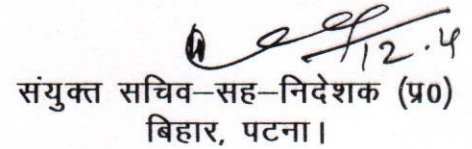 12.4
संयुक्त सचिव–सह–निदेशक (प्र0)
बिहार, पटना।